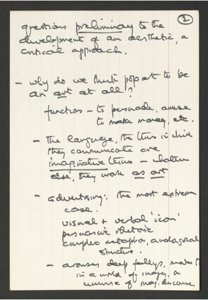 2
questions preliminary to the
development of an aesthetic, a
critical approach.
– why do we think pop art to be
an art at all?
function – to persuade, amuse
to make money, etc.
– the language, the terms in which
they communicate are
imaginative terms – whatever
else, they work as art
– advertising: the most extreme
case.
visual & verbal 'icon'
persuasive rhetoric
complex metaphor, analogical
structure.
– arouses deep feelings,
in a world of images, a
universe of